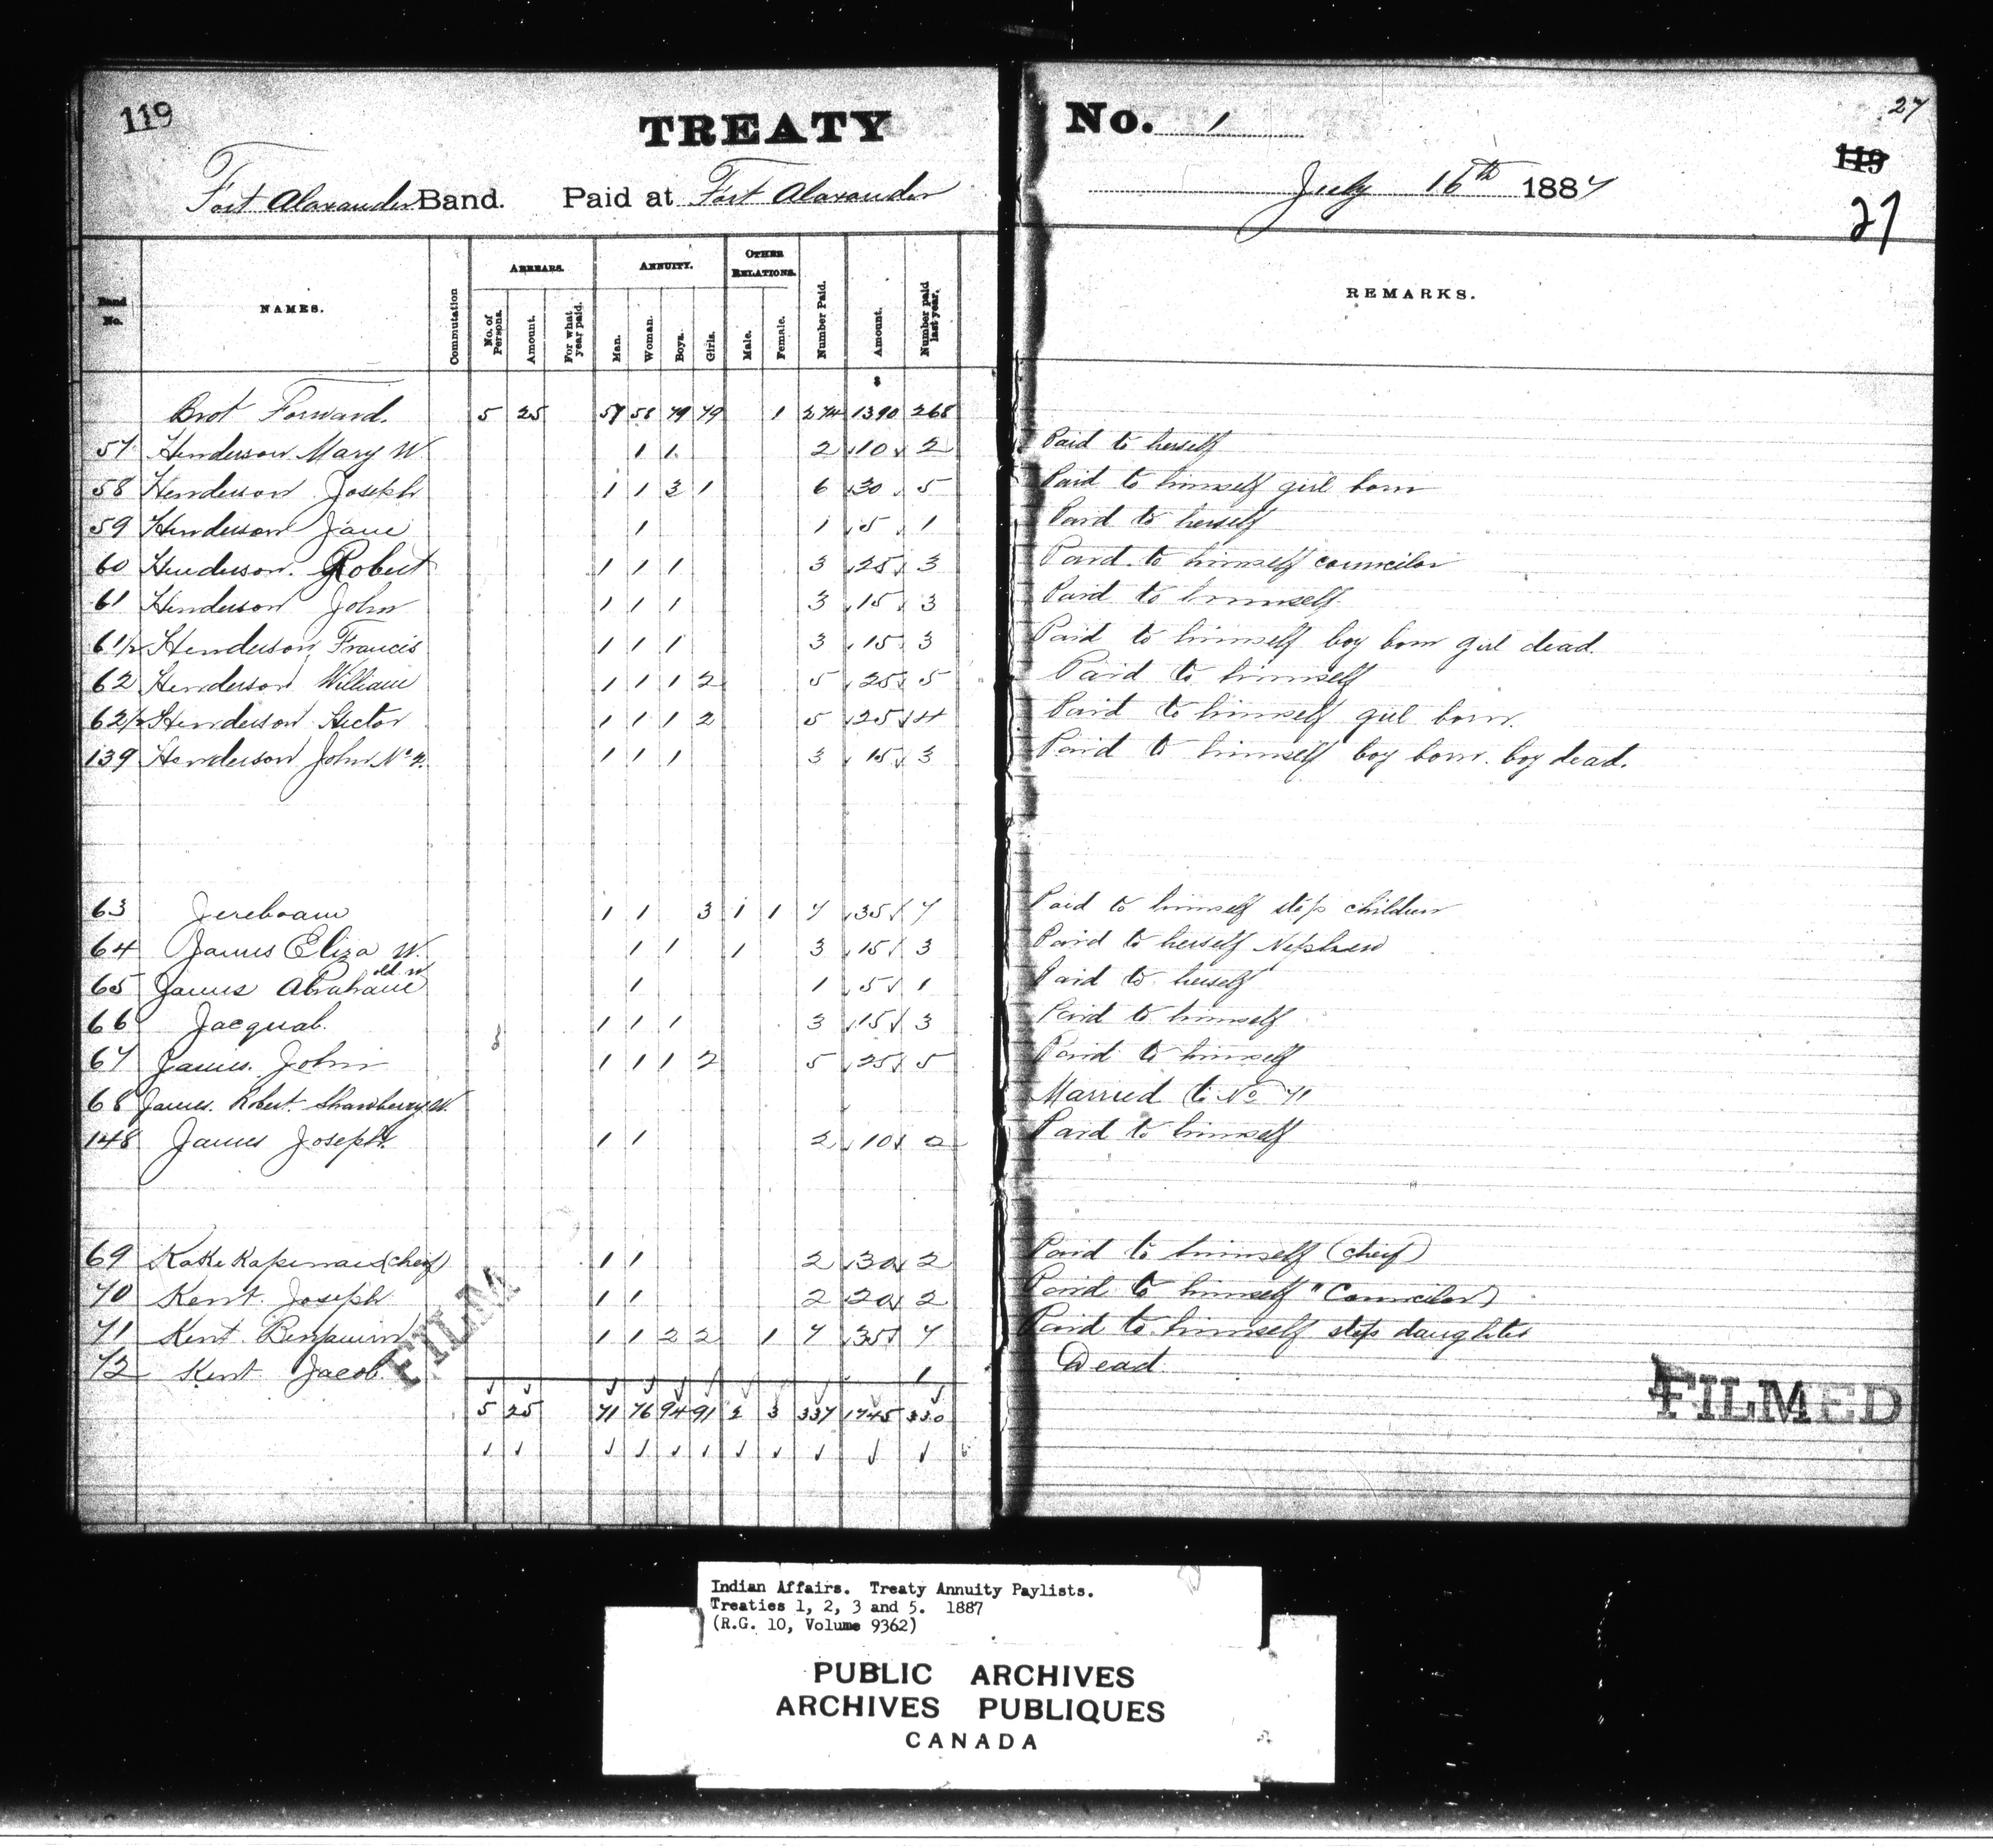 119
TREATY No. 1
27
119
Fort Alaxander Band. Paid at Fort Alaxander July 16th 1887
27
Band No. NAMES. Commutation ARREARS. No. of Persons. Amount. For what year paid. ANNUITY. Man. Woman. Boys. Girls. OTHER RELATIONS. Male. Female. Number Paid. Amount. Number paid last year. REMARKS.
$
Brot Forward. 5 25 57 58 79 79 1 274 1390 268
57 Henderson Mary W. 1 1 2 10 2 Paid to herself
58 Henderson Joseph 1 1 3 1 6 30 5 Paid to himself girl born
59 Henderson Jane 1 1 5 1 Paid to herself
60 Henderson. Robert 1 1 1 3 25 3 Paid to himself councilor
61 Henderson John 1 1 1 3 15 3 Paid to himself
61½ Henderson Francis 1 1 1 3 15 3 Paid to himself boy born girl dead.
62 Henderson William 1 1 1 2 5 25 5 Paid to himself
62½ Henderson Hector 1 1 1 2 5 25 4 Paid to himself girl born.
139 Henderson John No 2. 1 1 1 3 15 3 Paid to himself boy born. boy dead.
63 Jereboam 1 1 3 1 1 7 35 7 Paid to himself step children
64 James Eliza W. 1 1 1 3 15 3 Paid to herself Nephew
65 James Abraham old W 1 1 5 1 Paid to herself
66 Jacquab. 1 1 1 3 15 3 Paid to himself
67 James. John 1 1 1 2 5 25 5 Paid to himself
68 James. Robert. Strawberry W. Married to No 71
148 James Joseph. 1 1 2 10 2 Paid to himself
69 (cheif) 1 1 2 30 2 Paid to himself (cheif)
70 Kent. Joseph 1 1 2 20 2 Paid to himself "Councilor)
71 Kent Benjamin 1 1 2 2 1 7 35 7 Paid to himself step daughter
72 Kent Jacob. 1 Dead
5 25 71 76 94 91 2 3 337 1745 330
FILM
FILMED
Indian Affairs. Treaty Annuity Paylists.
Treaties 1, 2, 3 and 5. 1887
(R.G. 10, Volume 9362)
PUBLIC ARCHIVES
ARCHIVES PUBLIQUES
CANADA